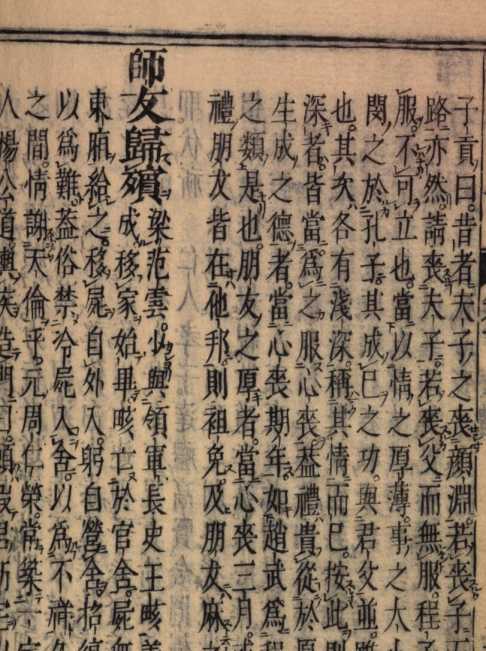 子貢曰。昔者夫子之喪顔淵。若喪子
路亦然。請喪夫子。若喪父而無服。程
服。不可立也。當以情之厚薄。事之大
閔之於孔子。其成己之功。與君父並。
也。其次各有淺深。稱其情而已。按此則
深者。皆當爲之服心喪。葢禮貴從於厚
生成之德者。當心喪期年。如趙武爲程
之類是也。朋友之厚者。當心喪三月。
禮。朋友皆在他邦。則袒免。及朋友麻。
師友歸殯
梁范雲。少與領軍長史王畡善
成移家始畢。畡亡於官舍。屍無
東廂給之。移屍自外入。躬自營含。招
以爲難。葢俗禁冷屍入舍。以爲不祥
之間。情謝天倫乎。元周仁榮常築一
人楊公道。輿疾造門曰。願假君所